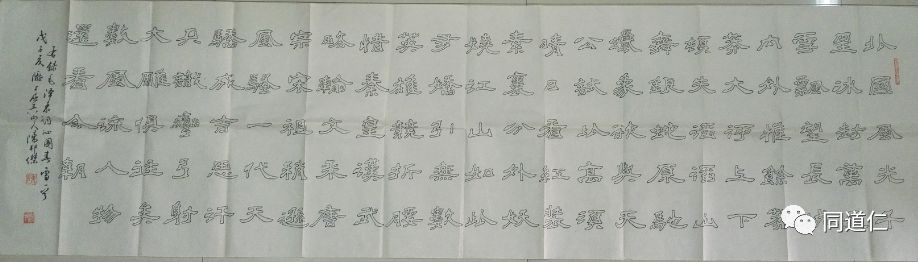 北國風光千
里冰封萬里
雪飄望長城
內外惟餘莽
莽大河上下
頓失滔滔山
舞銀蛇原馳
蠟象欲與天
公試比高須
晴日看紅裝
素裹分外妖
嬈江山如此
多嬌引無數
英雄競折腰
惜秦皇漢武
略輸文采唐
宗宋祖稍遜
風騷一代天
驕成吉思汗
只識彎弓射
大雕俱往矣
數風流人物
還看今朝
毛澤東詞沁園春雪一首
戊子夏
同道仁